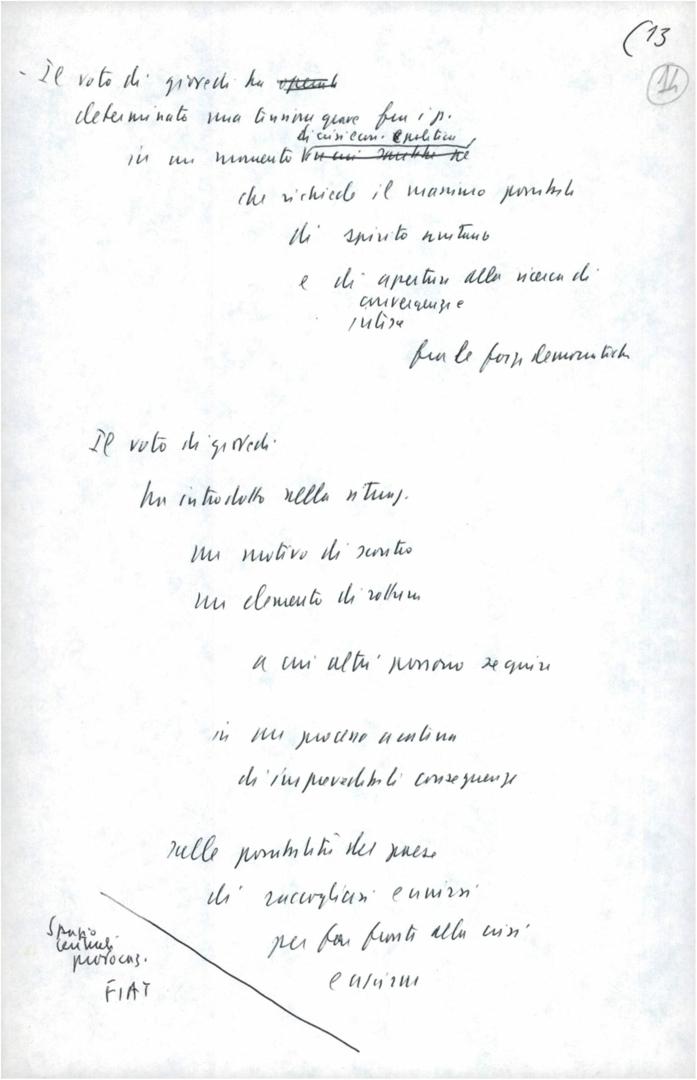 (13
14
- Il voto di giovedì ha
determinato una tensione grave fra i p.
di crisi econ. e politica,
in un momento
che richiede il massimo possibile
di spirito unitario
e di apertura alla ricerca di
convergenze e
intese
fra le forze democratiche
Il voto di giovedì
ha introdotto nella situaz.
un motivo di scontro
un elemento di rottura
a cui altri possono seguire
in un processo a catena
di imprevedibili conseguenze
sulle possibilità del paese
di raccogliersi e unirsi
per far fronte alla crisi
e uscirne
Spazio
centrali
provocaz.
FIAT